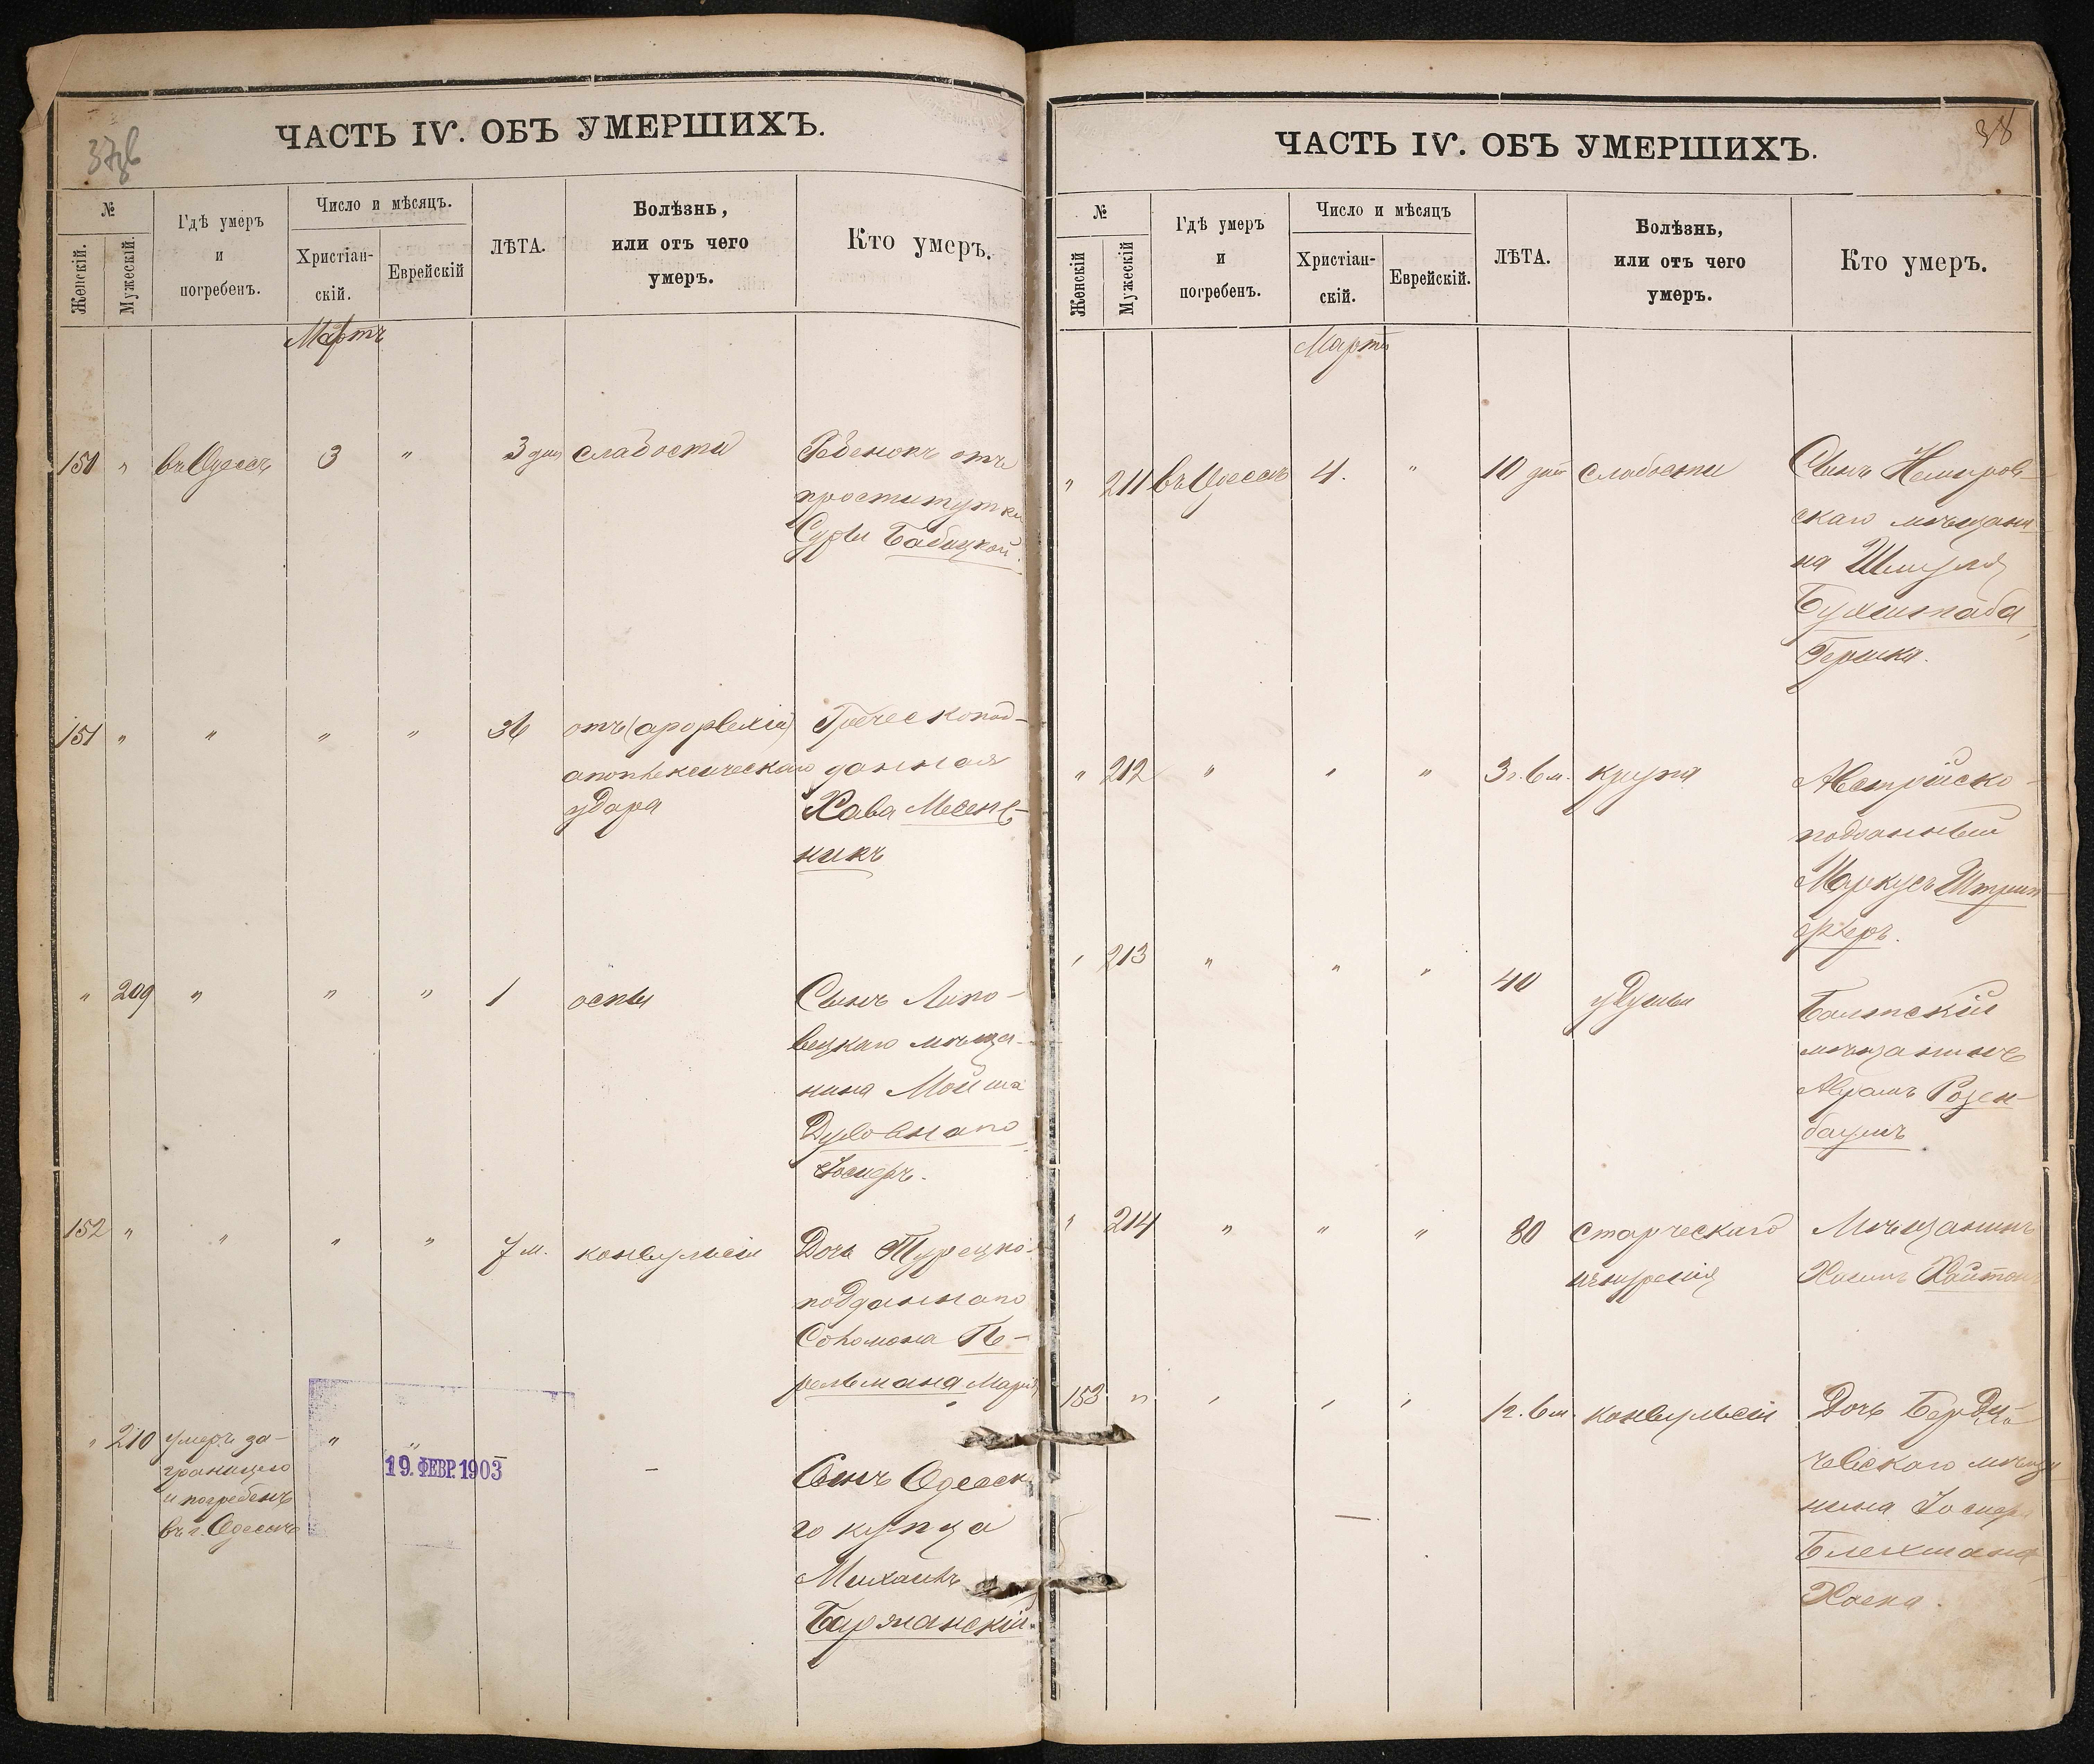 37зв
ЧАСТЬ IV. ОБЪ УМЕРШИХЪ.
№
Женскій.
Мужескій.
Гдѣ умеръ
и
погребенъ.
Число и мѣсяцъ.
Христіан-
скій.
Еврейскій
ЛѢТА.
Болѣзнь,
или отъ чего
умеръ.
Кто умеръ.
Мартъ
150 " въ Одессѣ 3 " 3 дня слабости Ребенокъ отъ
проститутки
Суры Бабицкой.
151 " " " " 36 отъ (apoplexia) Греческопод-
апоплексическаго данная
удара Хава Месен-
никъ
" 209 " " " 1 оспы Сынъ Липо-
вецкаго мѣща-
нина Мойша
Іосифъ.
152 " " " " 7 м. конвульсіи Дочь Турецко-
подданнаго
Соломона Пе-
рельмана Марія
" 210 умеръ за- " " – –
границею
и погребенъ
въ г. Одессѣ
19. ФЕВР. 1903
Сынъ Одесска
го купца
Михаилъ
Баржанскій.
38
ЧАСТЬ IV. ОБЪ УМЕРШИХЪ.
№
Женскій
Мужескій
Гдѣ умеръ
и
погребенъ.
Число и мѣсяцъ
Христіан-
скій.
Еврейскій.
ЛѢТА.
Болѣзнь,
или отъ чего
умеръ.
Кто умеръ.
Мартъ
" 211 въ Одессѣ 4. " 10 дней слабости Сынъ Немиров-
скаго мѣщани-
на Шмуля
Бухштаба,
Гершка.
" 212 " " " 3 г. 6 м. крупа Австрійско-
подданный
Маркусъ Штрип-
феръ.
" 213 " " " 40 удушья Балтскій
мѣщанинъ
Абрамъ Розен-
баумъ
" 214 " " " 80 старческаго Мѣщанинъ
изнуренія Хаимъ Хаитовъ
153 " " " " 1 г. 6 м. конвульсіи Дочь Берди-
чевскаго мѣща
нина Іосифа
Блехмана
Хаека.